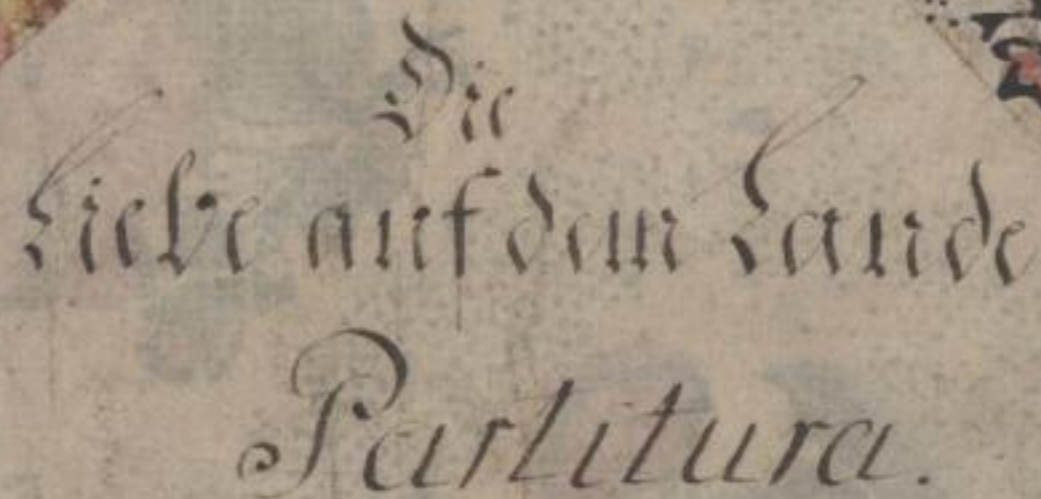 Die
Liebe auf dem Lande
Partitura.